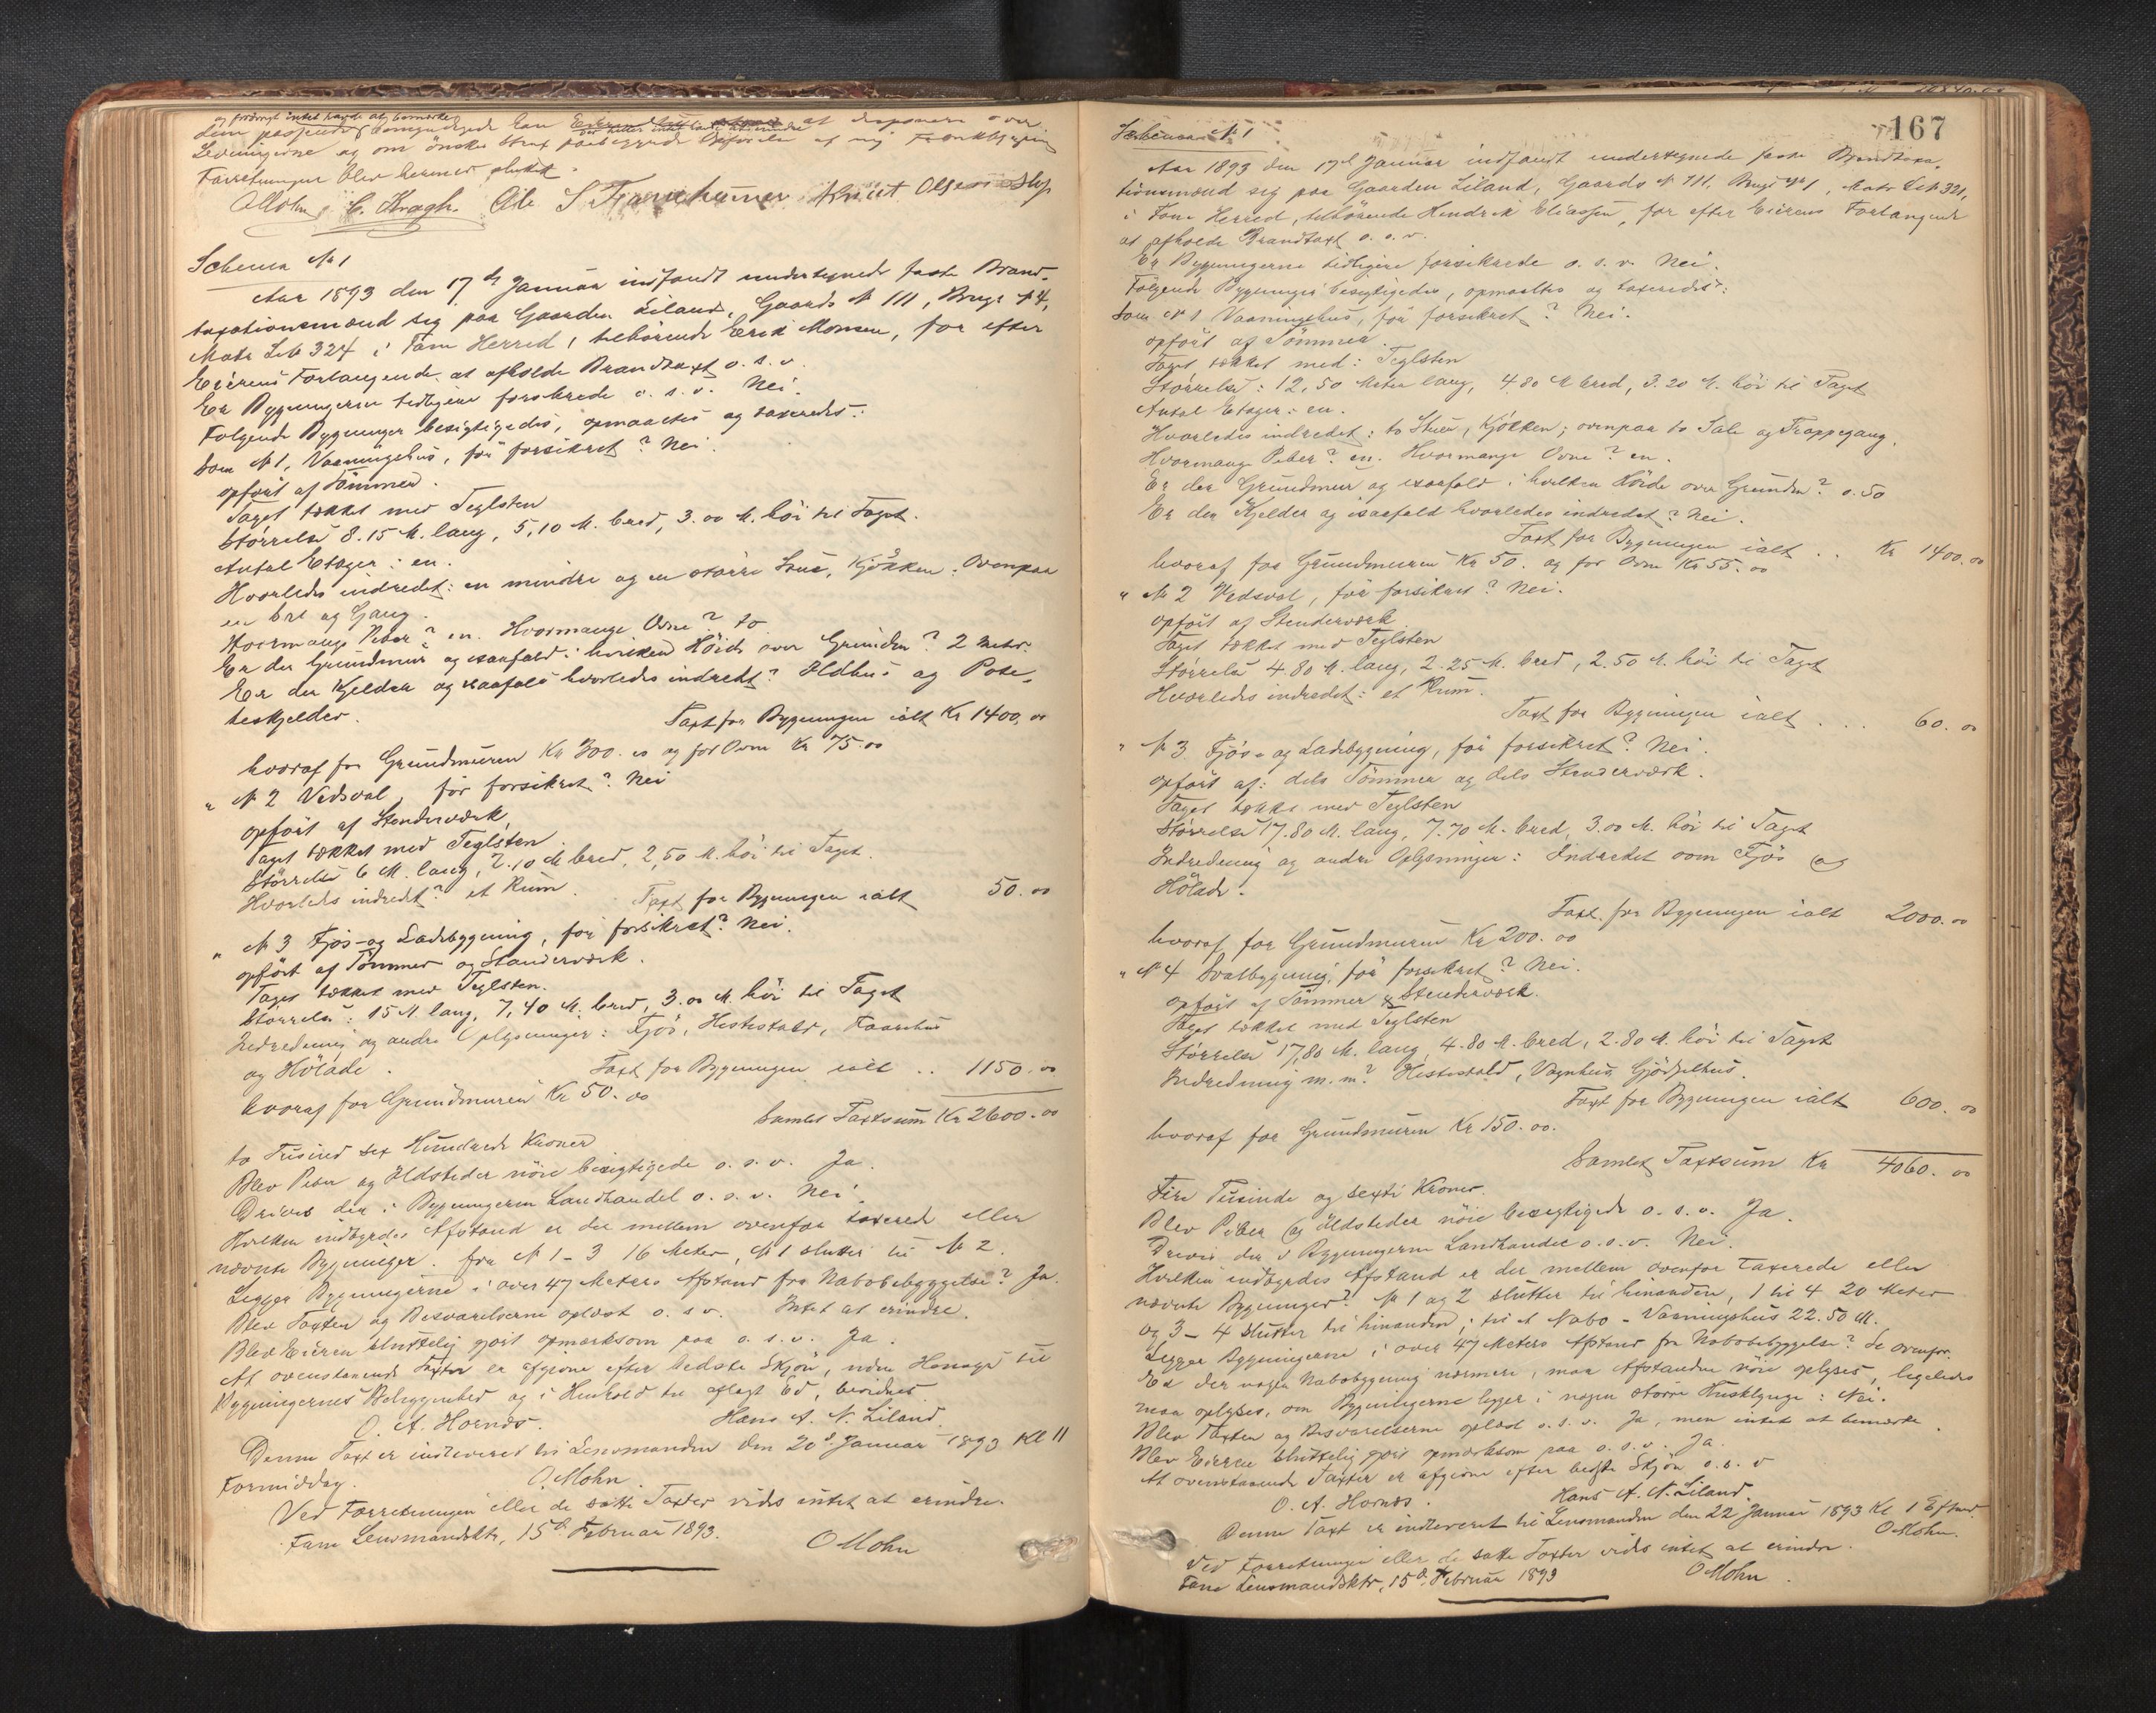 og forøvrigt intet havde at bemærke
Leveningerne og om ønskes strax paabegynde Opførelse af ny
Forretningen blev hermed sluttet.
OMohn. C. Kragh. Ole S Knut Olsen
Schema № 1
Aar 1893 den 17de Januar indfandt undertegnede faste Brand-
taxationsmænd sig paa Gaarden Liland, Gaards № 111, Brugs № 4,
Matr Lb 324 i Fane Herred, tilhørende Erik Monsen, for efter
Eierens Forlangende at afholde Brandtaxt o. s. v.
Er Bygningerne tidligere forsikrede o. s. v. Nei.
Følgende Bygninger besigtigedes, opmaaltes og taxeredes:
Som № 1, Vaaningshus, før forsikret? Nei.
opført af Tømmer.
Taget tækket med Teglsten
Størrelse 8.15 M. lang, 5,10 M. bred, 3.00 M. høi til Taget.
Antal Etager: en.
Hvorledes indredet: en mindre og en større Stue, Kjøkken: Ovenpaa
en Sal og Gang.
Hvormange Piber? en. Hvormange Ovne? to
Er der Grundmur og isaafald i hvilken Høide over Grunden? 2 Meter.
Er der Kjelder og isaafald hvorledes indredt? Ildhus og Pote-
teskjelder.
Taxt for Bygningen ialt Kr 1400.00
hvoraf for Grundmuren Kr 300.00 og for Ovne Kr 75.00
" № 2 Vedsval, før forsikret? Nei
opført af Stenderværk
Taget tækket med Teglsten
Størrelse 6 M. lang, 2.10 M bred, 2,50 M. høi til Taget.
Hvorledes indredet? et Rum.
Taxt for Bygningen ialt 50.00
" № 3 Fjøs- og Ladebygning, før forsikret? Nei.
opført af Tømmer og Stenderværk.
Taget tækket med Teglsten.
Størrelse: 15 M. lang, 7,40 M. bred, 3.00 M. høi til Taget
Indredning og andre Oplysninger: Fjøs, Hestestald, Faarehus
og Hølade.
Taxt for Bygningen ialt .. 1150.00
hvoraf for Grundmuren Kr 50.00
Samlet Taxtsum Kr 2600.00
to Tusind sex Hundrede Kroner
Blev Piber og Ildsteder nøie besigtigede o. s. v. Ja.
Drives der i Bygningerne Landhandel o. s. v. Nei.
Hvilken indbyrdes Afstand er der mellem ovenfor taxerede eller
nævnte Bygninger. fra № 1 - 3 16 Meter, № 1 slutter til № 2.
Ligger Bygningerne i over 47 Meters Afstand fra Nabobebyggelse? Ja.
Blev Taxten og Besvarelserne oplæst o. s v. Intet at erindre.
Blev Eieren sluttelig gjort opmærksom paa o. s. v. Ja.
At ovenstaaende Taxter er afgivne efter bedste Skjøn, uden Hensyn til
Bygningernes Beliggenhed og i Henhold til aflagt Ed, bevidnes
O. A. Hornæs. Hans A. N. Liland.
Denne Taxt er indleveret til Lensmanden den 20de Januar 1893 Kl 11
Formiddag. OMohn.
Ved Forretningen eller de satte Taxter vides intet at erindre.
Fane Lensmandsktr, 15de Februar 1893. OMohn
167
Schema № 1
Aar 1893 den 17de Januar indfandt undertegnede faste Brandtaxa-
tionsmænd sig paa Gaarden Liland, Gaards № 111, Brugs № 1, Matr Lb 321,
i Fane Herred, tilhørende Hendrik Eliassen, for efter Eierens Forlangende
at afholde Brandtaxt o. s. v.
Er Bygningerne tidligere forsikrede o. s. v. Nei.
Følgende Bygninger besigtigedes, opmaaltes og taxeredes:
Som № 1 Vaaningshus, før forsikret? Nei.
opført af Tømmer.
Taget tækket med: Teglsten
Størrelse: 12,50 Meter lang, 4.80 M bred, 3.20 M. høi til Taget
Antal Etager: en.
Hvorledes indredet: to Stuer, Kjøkken; ovenpaa to Sale og Trappegang.
Hvormange Piber? en. Hvormange Ovne? en.
Er der Grundmur og isaafald i hvilken Høide over Grunden? 0.50
Er der Kjelder og isaafald hvorledes indredet? Nei.
Taxt for Bygningen ialt .. Kr 1400.00
hvoraf for Grundmuren Kr 50. og for Ovne Kr 55.00
" № 2 Vedsval, før forsikret? Nei.
opført af Stenderværk
Taget tækket med Teglsten
Størrelse 4.80 M. lang, 2.25 M. bred, 2.50 M. høi til Taget
Hvorledes indredet: et Rum.
Taxt for Bygningen ialt ... 60.00
" № 3 Fjøs- og Ladebygning, før forsikret? Nei.
opført af: dels Tømmer og dels Stenderværk.
Taget tækket med Teglsten
Størrelse 17.80 M. lang, 7.70 M. bred, 3.00 M. høi til Taget
Indredning og andre Oplysninger: Indredet som Fjøs og
Hølade.
Taxt for Bygningen ialt 2000.00
hvoraf for Grundmuren Kr 200.00
" № 4 Svalbygning, før forsikret? Nei.
opført af Tømmer & Stenderværk.
Taget tækket med Teglsten
Størrelse 17,80 M. lang, 4.80 M. bred, 2.80 M. høi til Taget
Indredning m. m? Hestestald, Vognhus, Gjødselhus.
Taxt for Bygningen ialt 600.00
hvoraf for Grundmuren Kr 150.00.
Samlet Taxtsum Kr 4060.00
Fire Tusinde og sexti Kroner.
Blev Piber og Ildsteder nøie besigtigede o. s. v. Ja.
Drives der i Bygningerne Landhandel o. s. v. Nei.
Hvilken indbyrdes Afstand er der mellem ovenfor taxerede eller
nævnte Bygninger? № 1 og 2 slutter til hinanden, 1 til 4 20 Meter
og 3 - 4 slutter til hinanden; til et Nabo-Vaaningshus 22.50 M.
Ligger Bygningerne i over 47 Meters Afstand fra Nabobebyggelse? Se ovenfor.
Er der nogen Nabobygning nærmere, maa Afstanden nøie oplyses, ligeledes
maa oplyses, om Bygningerne ligger i nogen større Husklynge: Nei.
Blev Taxten og Besvarelserne oplæst o. s. v. Ja, men intet at bemærke.
Blev Eieren sluttelig gjort opmærksom paa o. s. v. Ja.
At ovenstaaende Taxter er afgivne efter bedste Skjøn o. s. v
O. A. Hornæs. Hans A. N. Liland.
Denne Taxt er indleveret til Lensmanden den 22 Januar 1893 Kl 1 Efmd.
OMohn.
Ved Forretningen eller de satte Taxter vides intet at erindre.
Fane Lensmandsktr, 15de Februar 1893 OMohn.